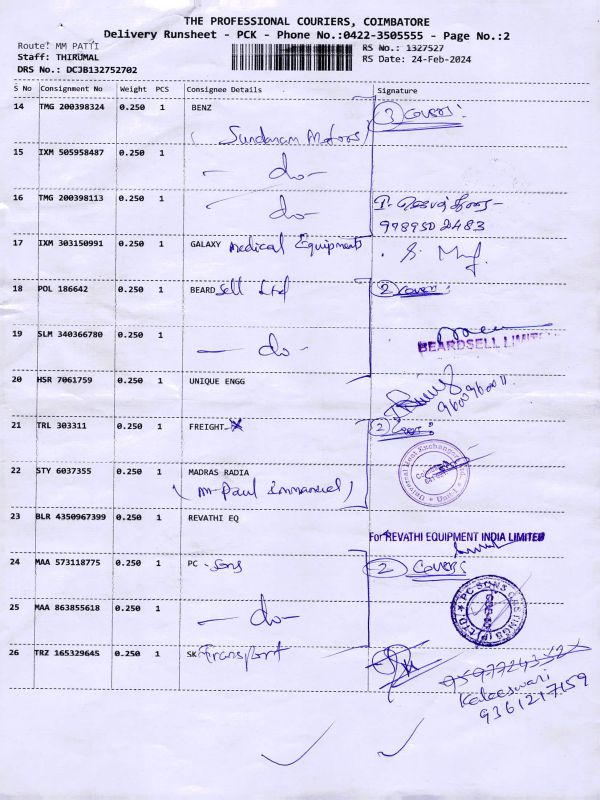 THE PROFESSIONAL COURIERS, COIMBATORE
Delivery Runsheet - PCK - Phone No.:0422-3505555 - Page No.:2
Route: MM PATTI RS No.: 1327527
Staff: THIRUMAL RS Date: 24-Feb-2024
DRS No.: DCJB132752702
S No Consignment No Weight PCS Consignee Details Signature
14 TMG 200398324 0.250 1 BENZ 3 Covers:
(Sundaram Motors)
15 IXM 505958487 0.250 1 -do-
16 TMG 200398113 0.250 1 -do-
9989502483
17 IXM 303150991 0.250 1 GALAXY Medical Equipments
18 POL 186642 0.250 1 BEARD Sell Ltd 2 Covers:
19 SLM 340366780 0.250 1 -do-
BEARDSELL LIMIT
20 HSR 7061759 0.250 1 UNIQUE ENGG
21 TRL 303311 0.250 1 FREIGHT-X 2
22 STY 6037355 0.250 1 MADRAS RADIA
(Mr Paul Immanuel)
Universal Heat Exchangers Unit-I
23 BLR 4350967399 0.250 1 REVATHI EQ
For REVATHI EQUIPMENT INDIA LIMITED
24 MAA 573118775 0.250 1 PC - Sons 2 Covers
25 MAA 863855618 0.250 1 -do-
PC SONS CASTINGS (P) LTD
26 TRZ 165329645 0.250 1 SK Transport
Kaleeswari
9361217159